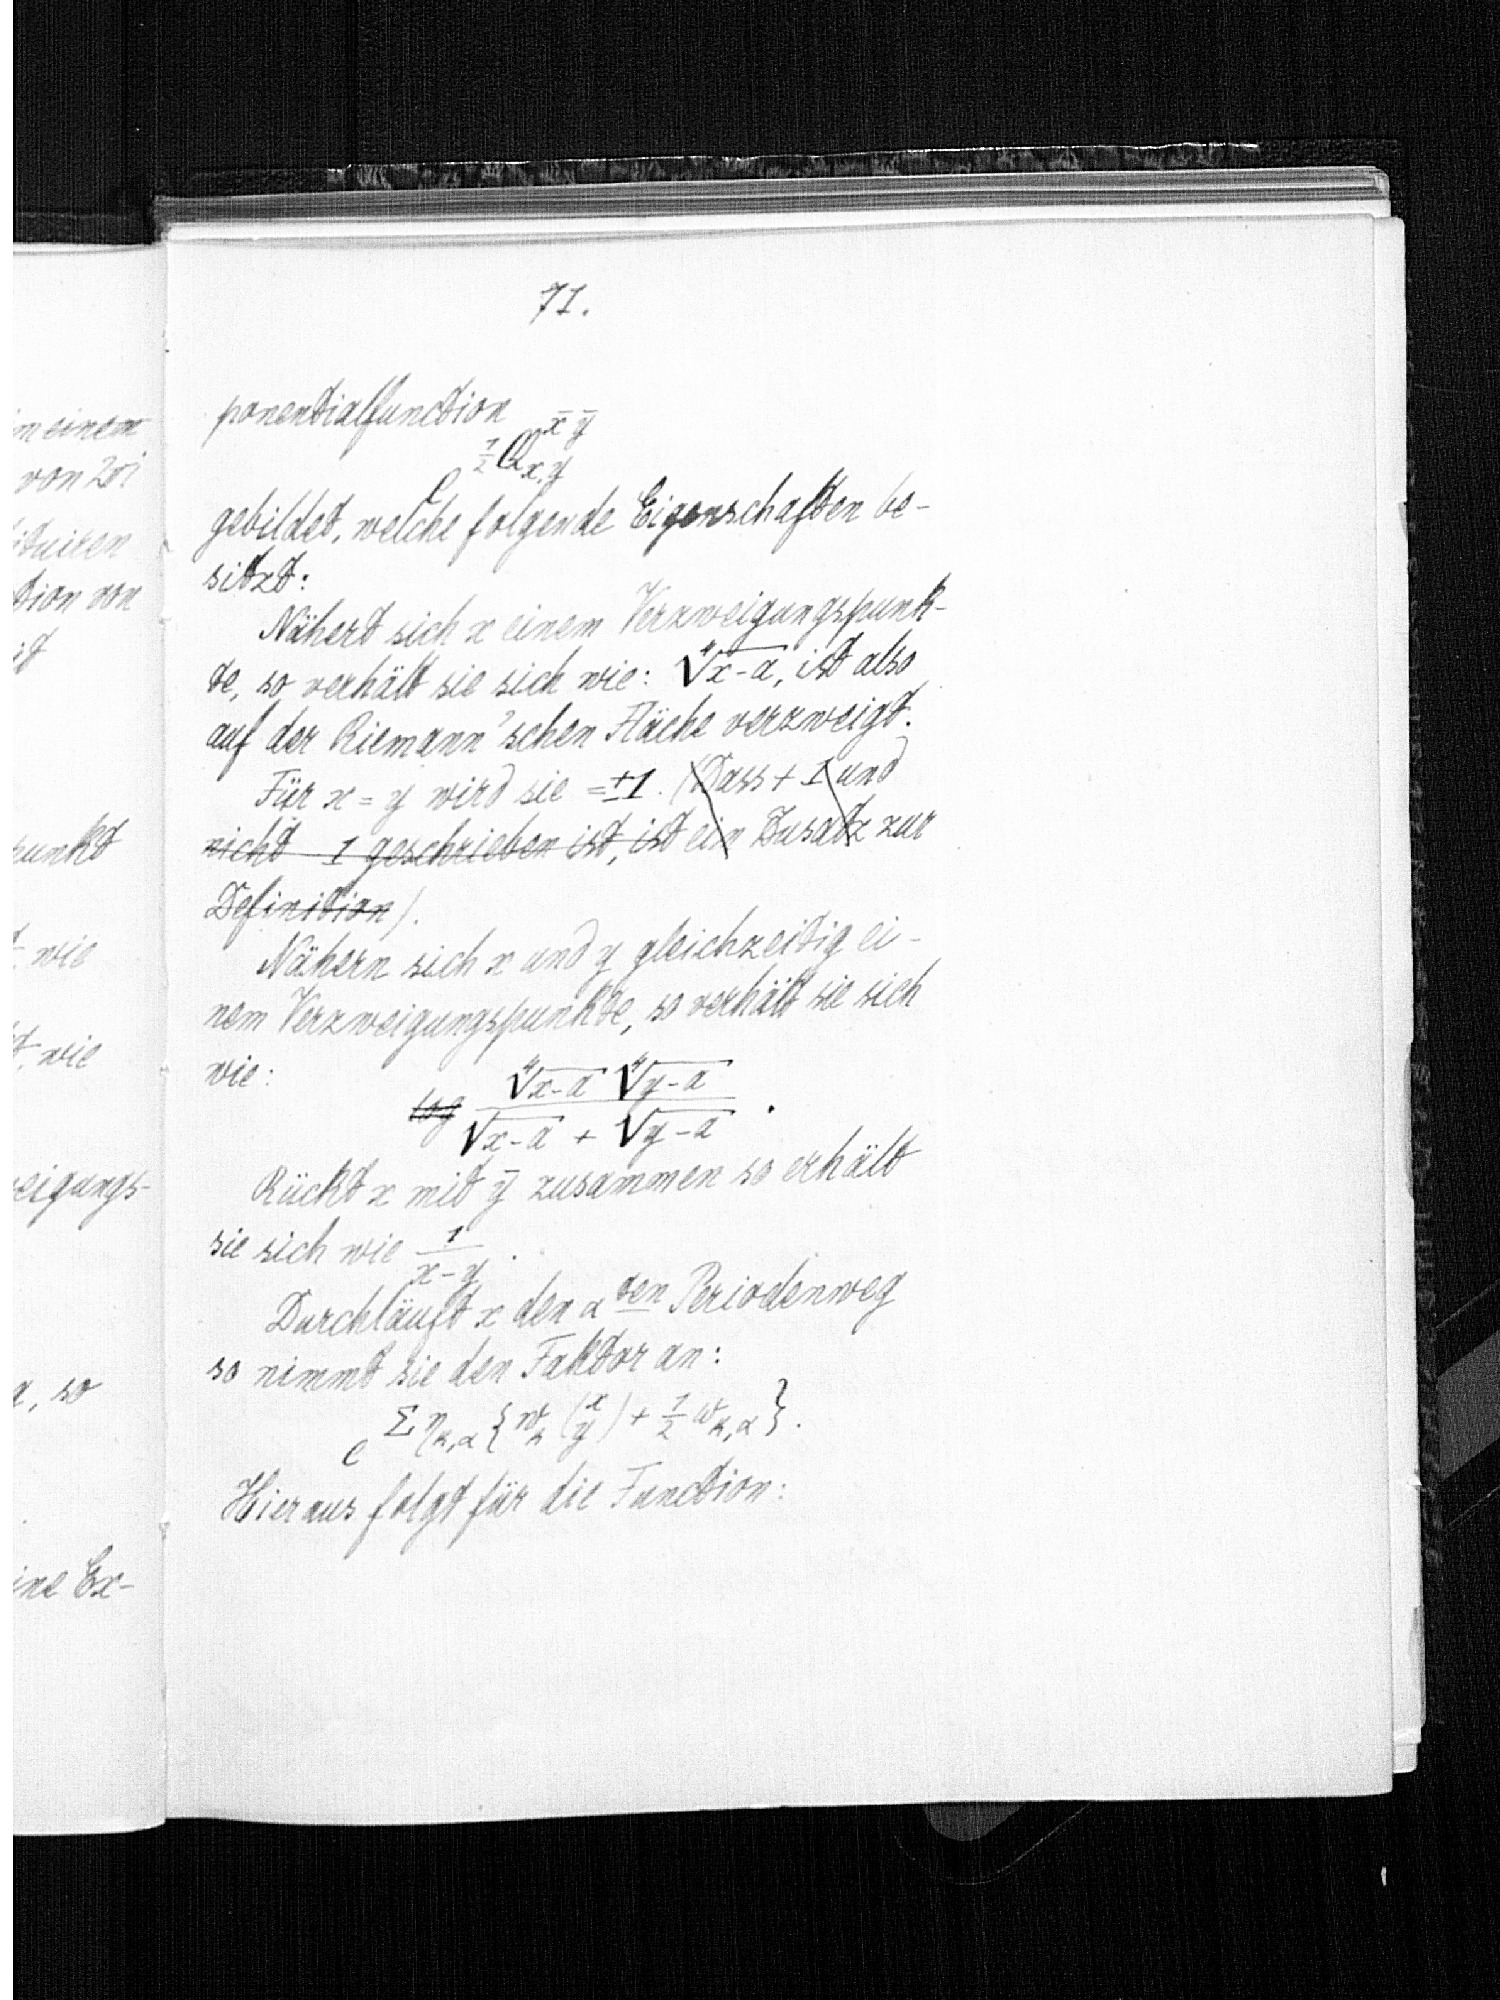 71.
ponentialfunction
e^{\frac{1}{2} Q_{x,y}^{\bar{x} \bar{y}}}
gebildet, welche folgende Eigenschaften be-
sitzt:
Nähert sich x einem Verzweigungspunk-
te, so verhält sie sich wie: \sqrt[4]{x-a}, ist also
auf der Riemann'schen Fläche verzweigt.
Für x = y wird sie = ±1. (Dass + 1 und
nicht - 1 geschrieben ist, ist ein Zusatz zur
Definition).
Nähern sich x und y gleichzeitig ei-
nem Verzweigungspunkte, so verhält sie sich
wie:
log \frac{\sqrt[4]{x-a} \sqrt[4]{y-a}}{\sqrt{x-a} + \sqrt{y-a}}.
Rückt x mit \bar{y} zusammen so erhält
sie sich wie \frac{1}{x-y}.
Durchläuft x den α ten Periodenweg
so nimmt sie den Faktor an:
e^{Σ η_{κ,α} \{ w_κ (\frac{x}{y}) + \frac{1}{2} ω_{κ,α} \}}.
Hieraus folgt für die Function:
m einem
von 2πi
ituiren
tion von
punkt
wie
wie
eigungs-
a, so
ine Ex-